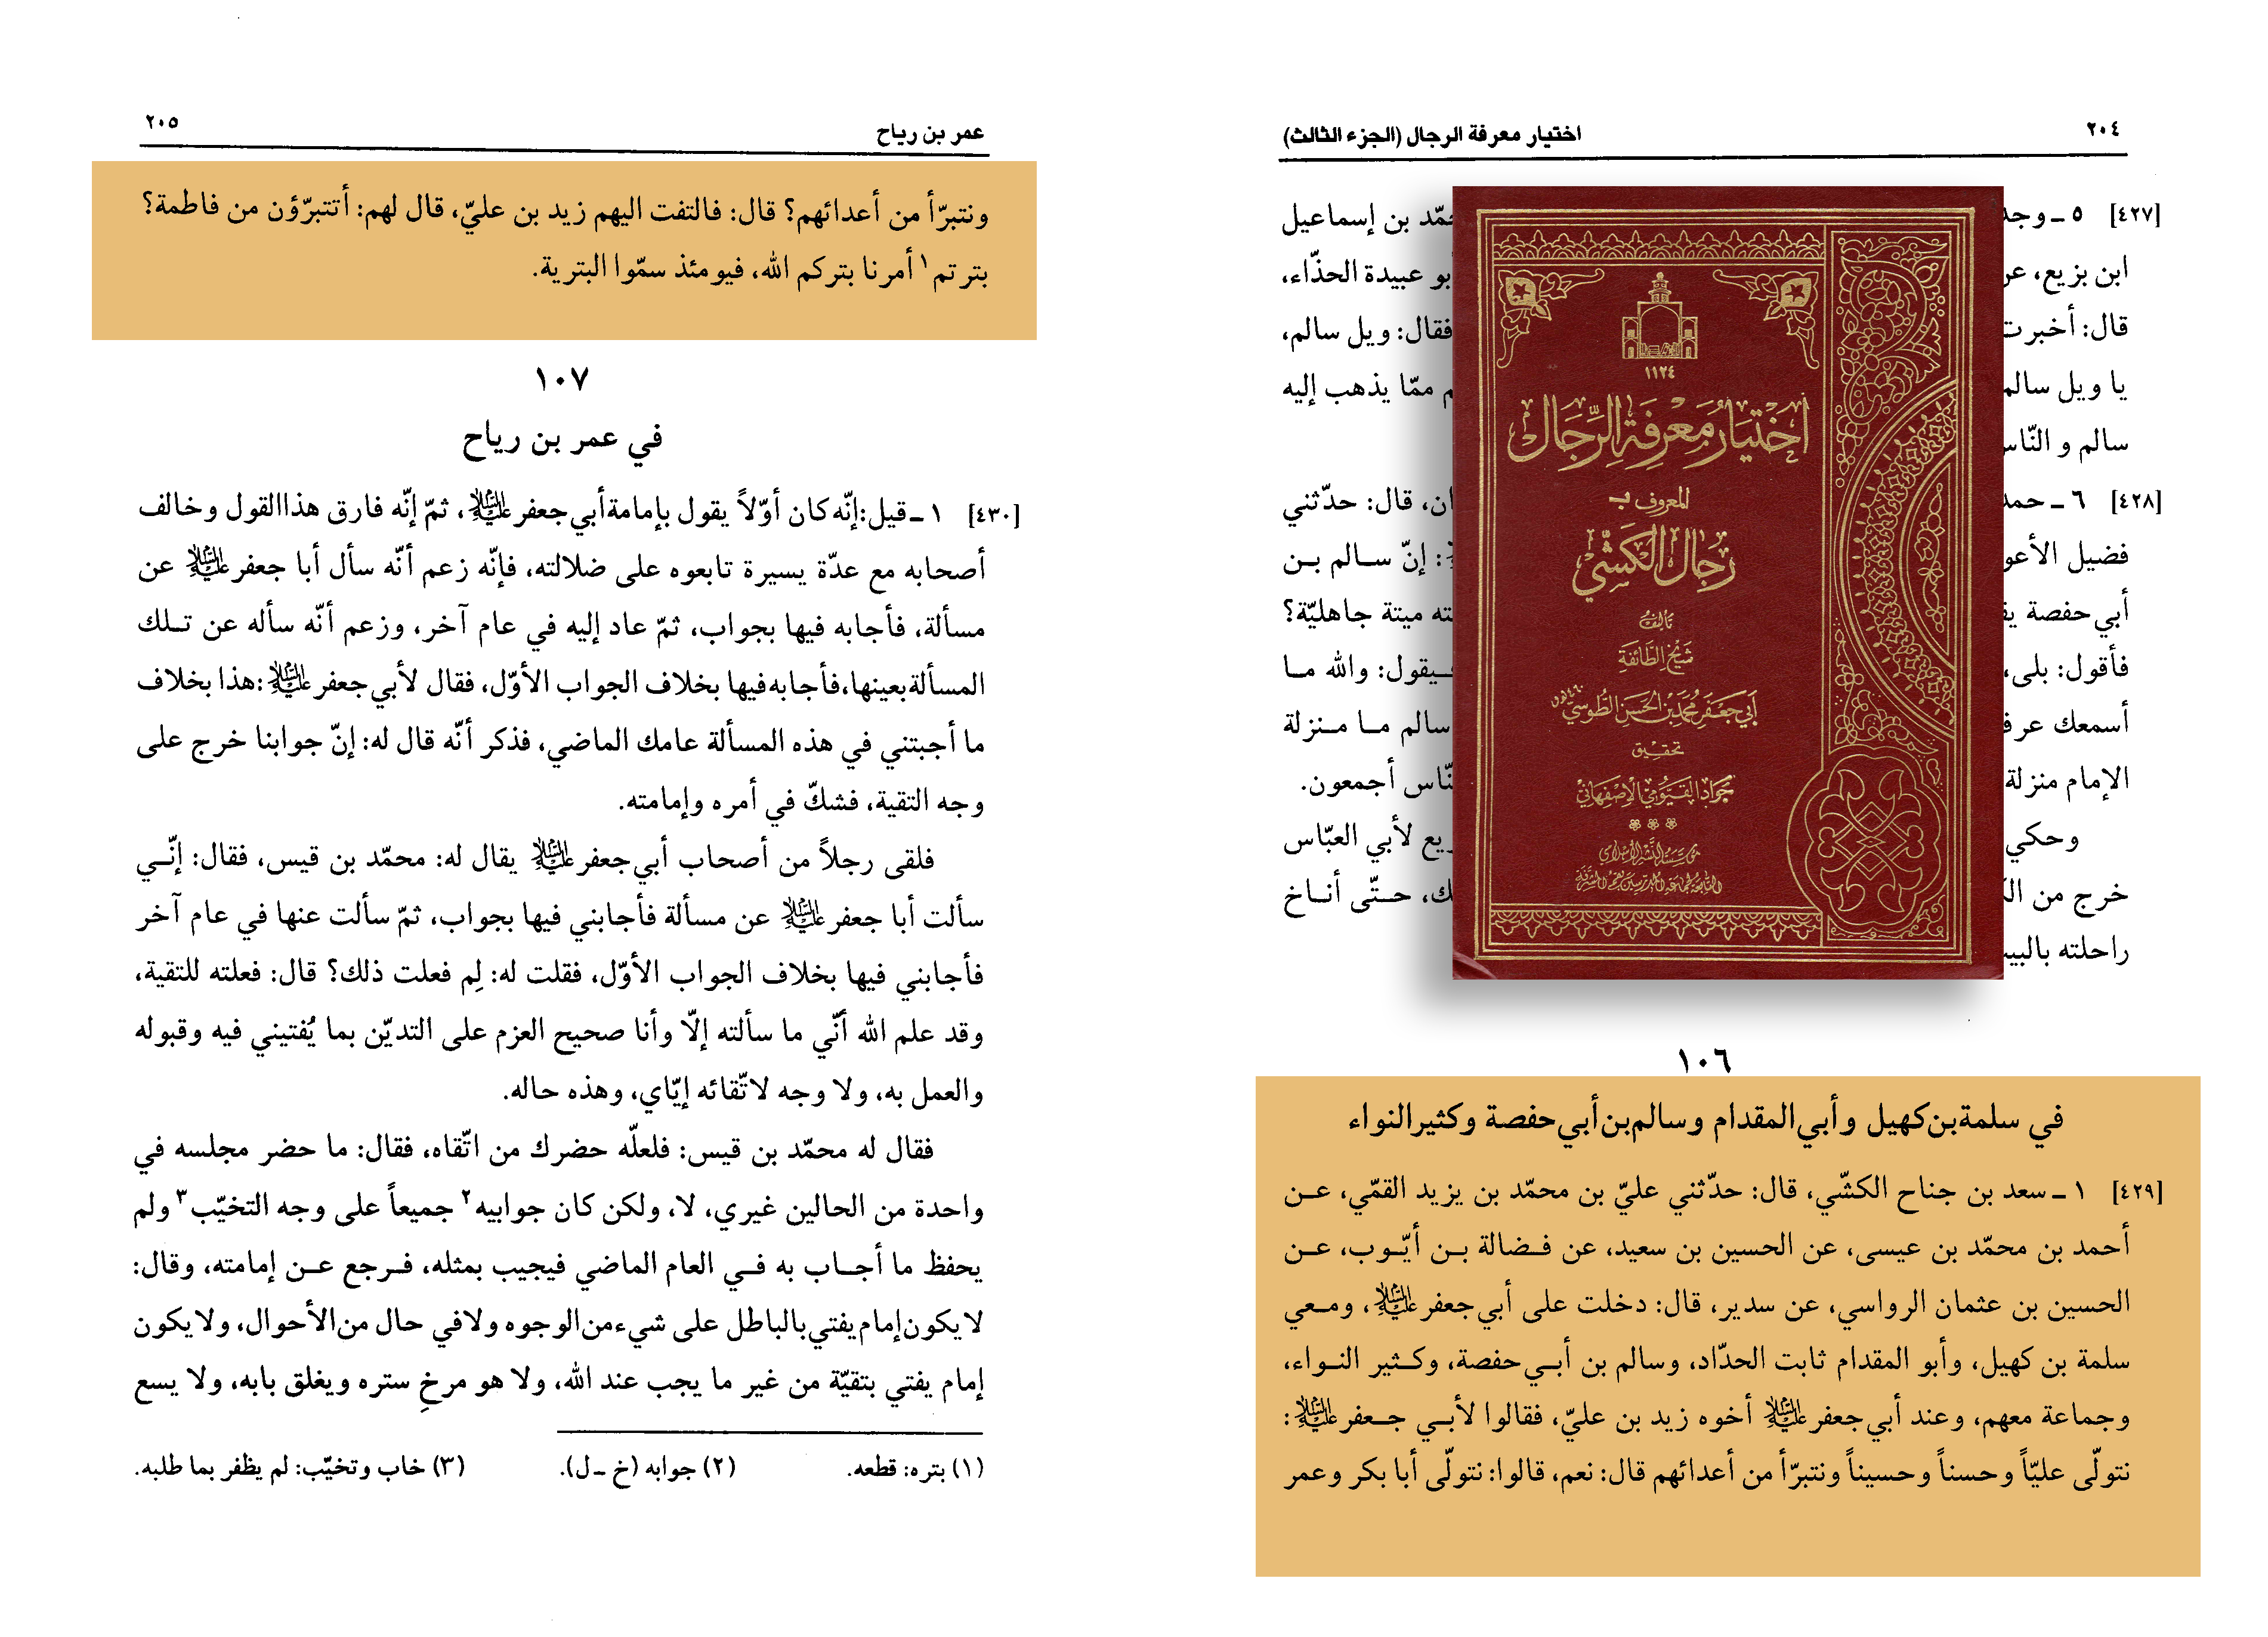 ٢٠٤
اختيار معرفة الرجال (الجزء الثالث)
[٤٢٧] ٥ ـ وجد
مّد بن إسماعيل
ابن بزيع، عن
بو عبيدة الحذّاء،
قال: أخبرت
فقال: ويل سالم،
يا ويل سالم
ممّا يذهب إليه
سالم و النّاس
[٤٢٨] ٦ ـ حمد
ان، قال: حدّثني
فضيل الأعو
: إنّ سالم بن
أبي حفصة يق
ته ميتة جاهليّة؟
فأقول: بلى،
فيقول: والله ما
أسمعك عرف
سالم ما منزلة
الإمام منزلة
نّاس أجمعون.
وحكي
يع لأبي العبّاس
خرج من الك
ك، حتّى أناخ
راحلته بالبيت
١١٢٤
إختيار معرفة الرجال
المعروف بـ
رجال الكشّي
تأليف
شيخ الطائفة
أبي جعفر محمد بن الحسن الطوسي
تحقيق
جواد القيّومي الإصفهاني
مؤسسة النشر الإسلامي
التابعة لجماعة المدرسين بقم المشرفة
١٠٦
في سلمة بن كهيل وأبي المقدام وسالم بن أبي حفصة وكثير النواء
[٤٢٩] ١ ـ سعد بن جناح الكشّي، قال: حدّثني عليّ بن محمّد بن يزيد القمّي، عن
أحمد بن محمّد بن عيسى، عن الحسين بن سعيد، عن فضالة بن أيّوب، عن
الحسين بن عثمان الرواسي، عن سدير، قال: دخلت على أبي جعفر عليه السلام، ومعي
سلمة بن كهيل، وأبو المقدام ثابت الحدّاد، وسالم بن أبي حفصة، وكثير النواء،
وجماعة معهم، وعند أبي جعفر عليه السلام أخوه زيد بن عليّ، فقالوا لأبي جعفر عليه السلام:
نتولّى عليّاً وحسناً وحسيناً ونتبرّأ من أعدائهم قال: نعم، قالوا: نتولّى أبا بكر وعمر
عمر بن رياح
٢٠٥
ونتبرّأ من أعدائهم؟ قال: فالتفت اليهم زيد بن عليّ، قال لهم: أتتبرّؤن من فاطمة؟
بترتم١ أمرنا بتركم الله، فيومئذ سمّوا البترية.
١٠٧
في عمر بن رياح
[٤٣٠] ١ ـ قيل: إنّه كان أوّلاً يقول بإمامة أبي جعفر عليه السلام، ثمّ إنّه فارق هذا القول وخالف
أصحابه مع عدّة يسيرة تابعوه على ضلالته، فإنّه زعم أنّه سأل أبا جعفر عليه السلام عن
مسألة، فأجابه فيها بجواب، ثمّ عاد إليه في عام آخر، وزعم أنّه سأله عن تلك
المسألة بعينها، فأجابه فيها بخلاف الجواب الأوّل، فقال لأبي جعفر عليه السلام: هذا بخلاف
ما أجبتني في هذه المسألة عامك الماضي، فذكر أنّه قال له: إنّ جوابنا خرج على
وجه التقية، فشكّ في أمره وإمامته.
فلقى رجلاً من أصحاب أبي جعفر عليه السلام يقال له: محمّد بن قيس، فقال: إنّي
سألت أبا جعفر عليه السلام عن مسألة فأجابني فيها بجواب، ثمّ سألت عنها في عام آخر
فأجابني فيها بخلاف الجواب الأوّل، فقلت له: لِم فعلت ذلك؟ قال: فعلته للتقية،
وقد علم الله أنّي ما سألته إلّا وأنا صحيح العزم على التديّن بما يُفتيني فيه وقبوله
والعمل به، ولا وجه لاتّقائه إيّاي، وهذه حاله.
فقال له محمّد بن قيس: فلعلّه حضرك من اتّقاه، فقال: ما حضر مجلسه في
واحدة من الحالين غيري، لا، ولكن كان جوابيه٢ جميعاً على وجه التخيّب٣ ولم
يحفظ ما أجاب به في العام الماضي فيجيب بمثله، فرجع عن إمامته، وقال:
لا يكون إمام يفتي بالباطل على شيء من الوجوه ولا في حال من الأحوال، ولا يكون
إمام يفتي بتقيّة من غير ما يجب عند الله، ولا هو مرخِ ستره ويغلق بابه، ولا يسع
(١) بتره: قطعه.
(٢) جوابه (خ ـ ل).
(٣) خاب وتخيّب: لم يظفر بما طلبه.